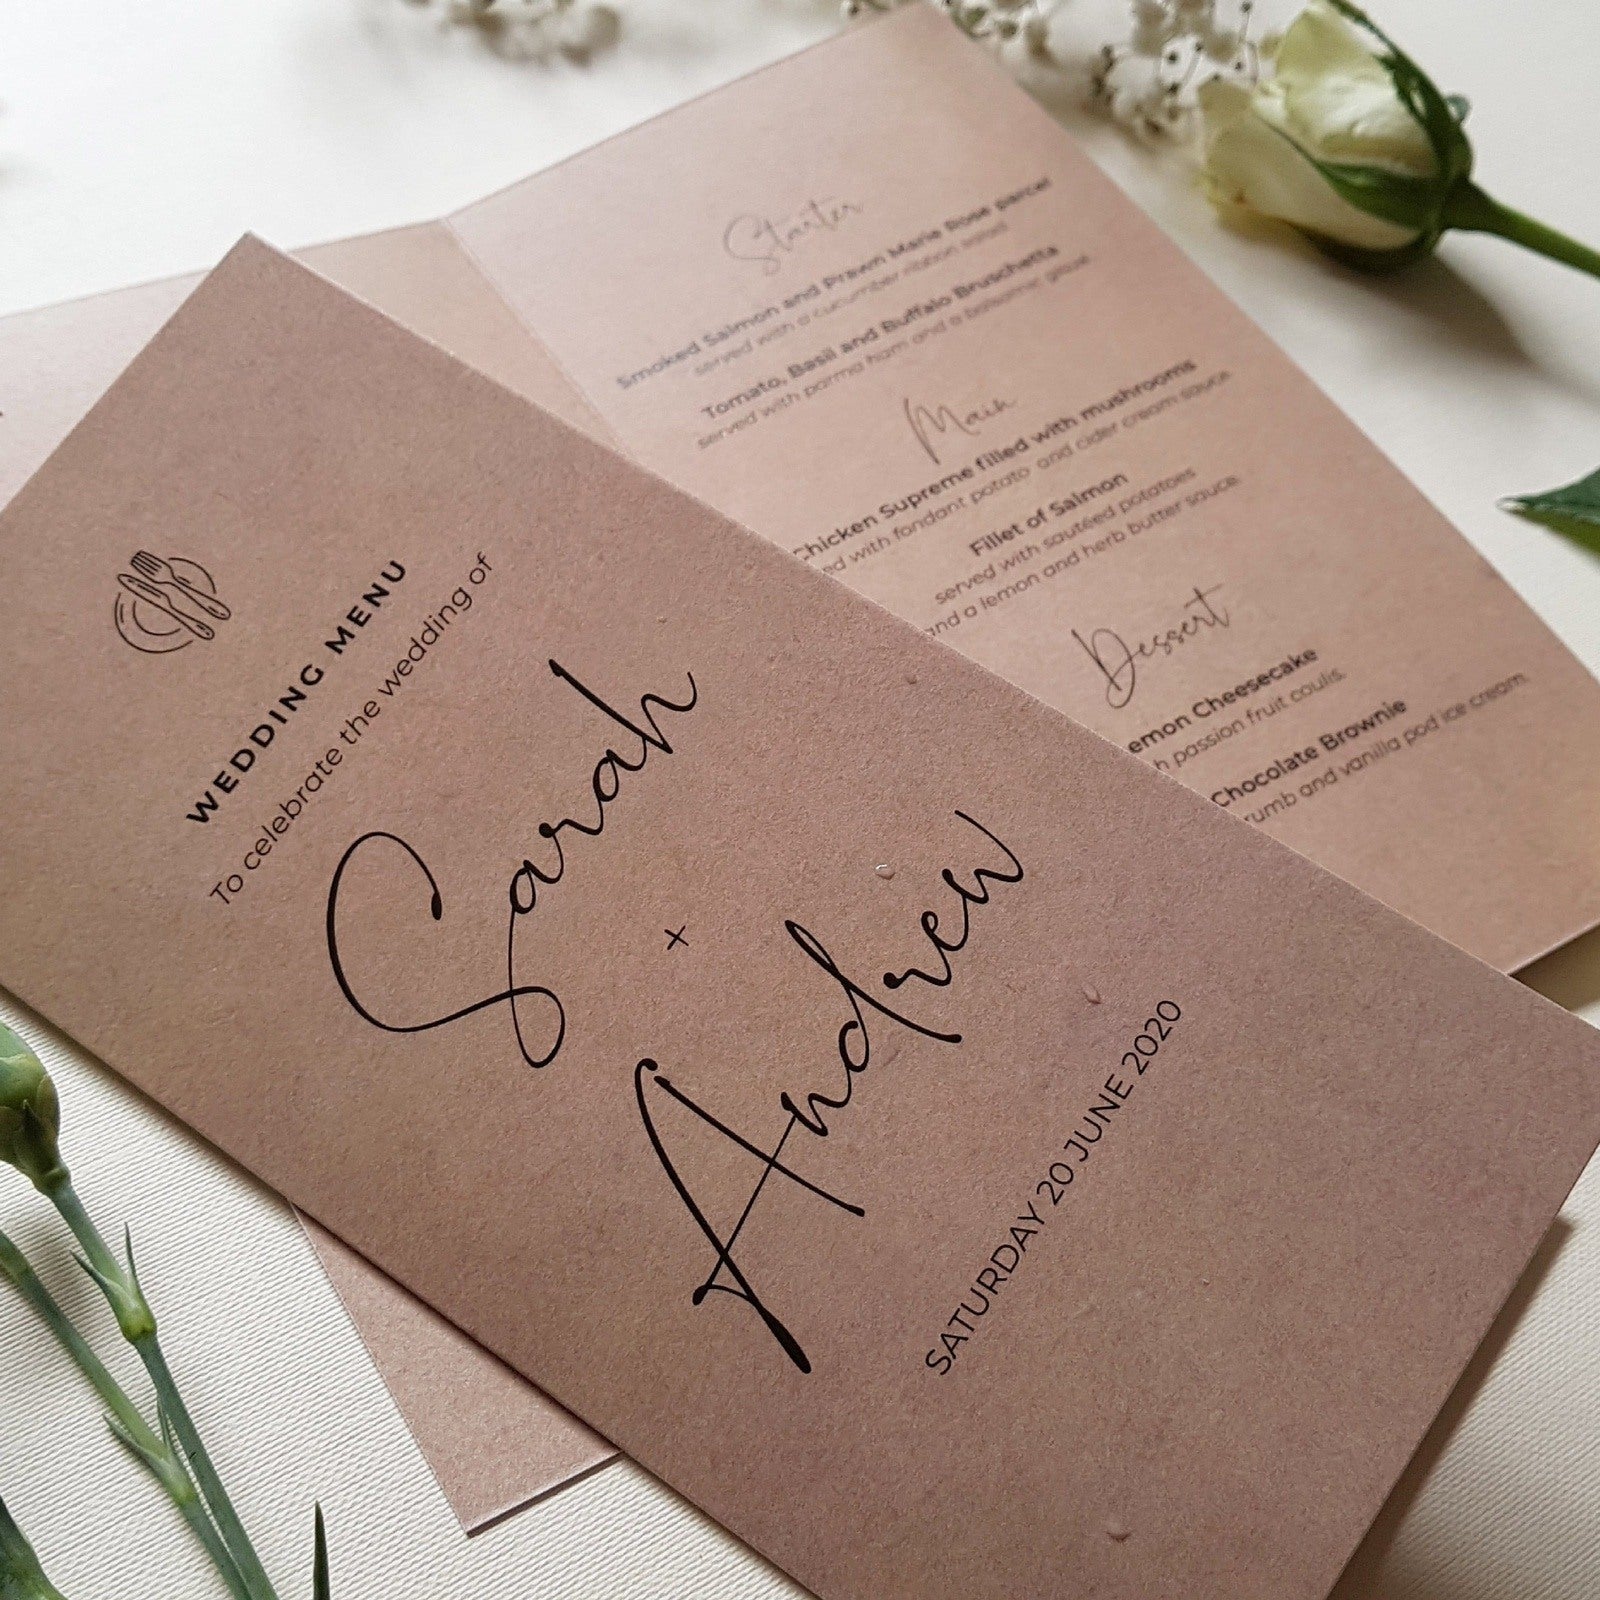 WEDDING MENU
To celebrate the wedding of
Sarah
+
Andrew
SATURDAY 20 JUNE 2020
Starter
Smoked Salmon and Prawn Marie Rose parcel
served with a cucumber ribbon salad
Tomato, Basil and Buffalo Bruschetta
served with parma ham and a balsamic glaze
Main
Chicken Supreme filled with mushrooms
with fondant potato and cider cream sauce
Fillet of Salmon
served with sautéed potatoes
and a lemon and herb butter sauce
Dessert
Cheesecake
passion fruit coulis.
Chocolate Brownie
and vanilla pod ice cream.